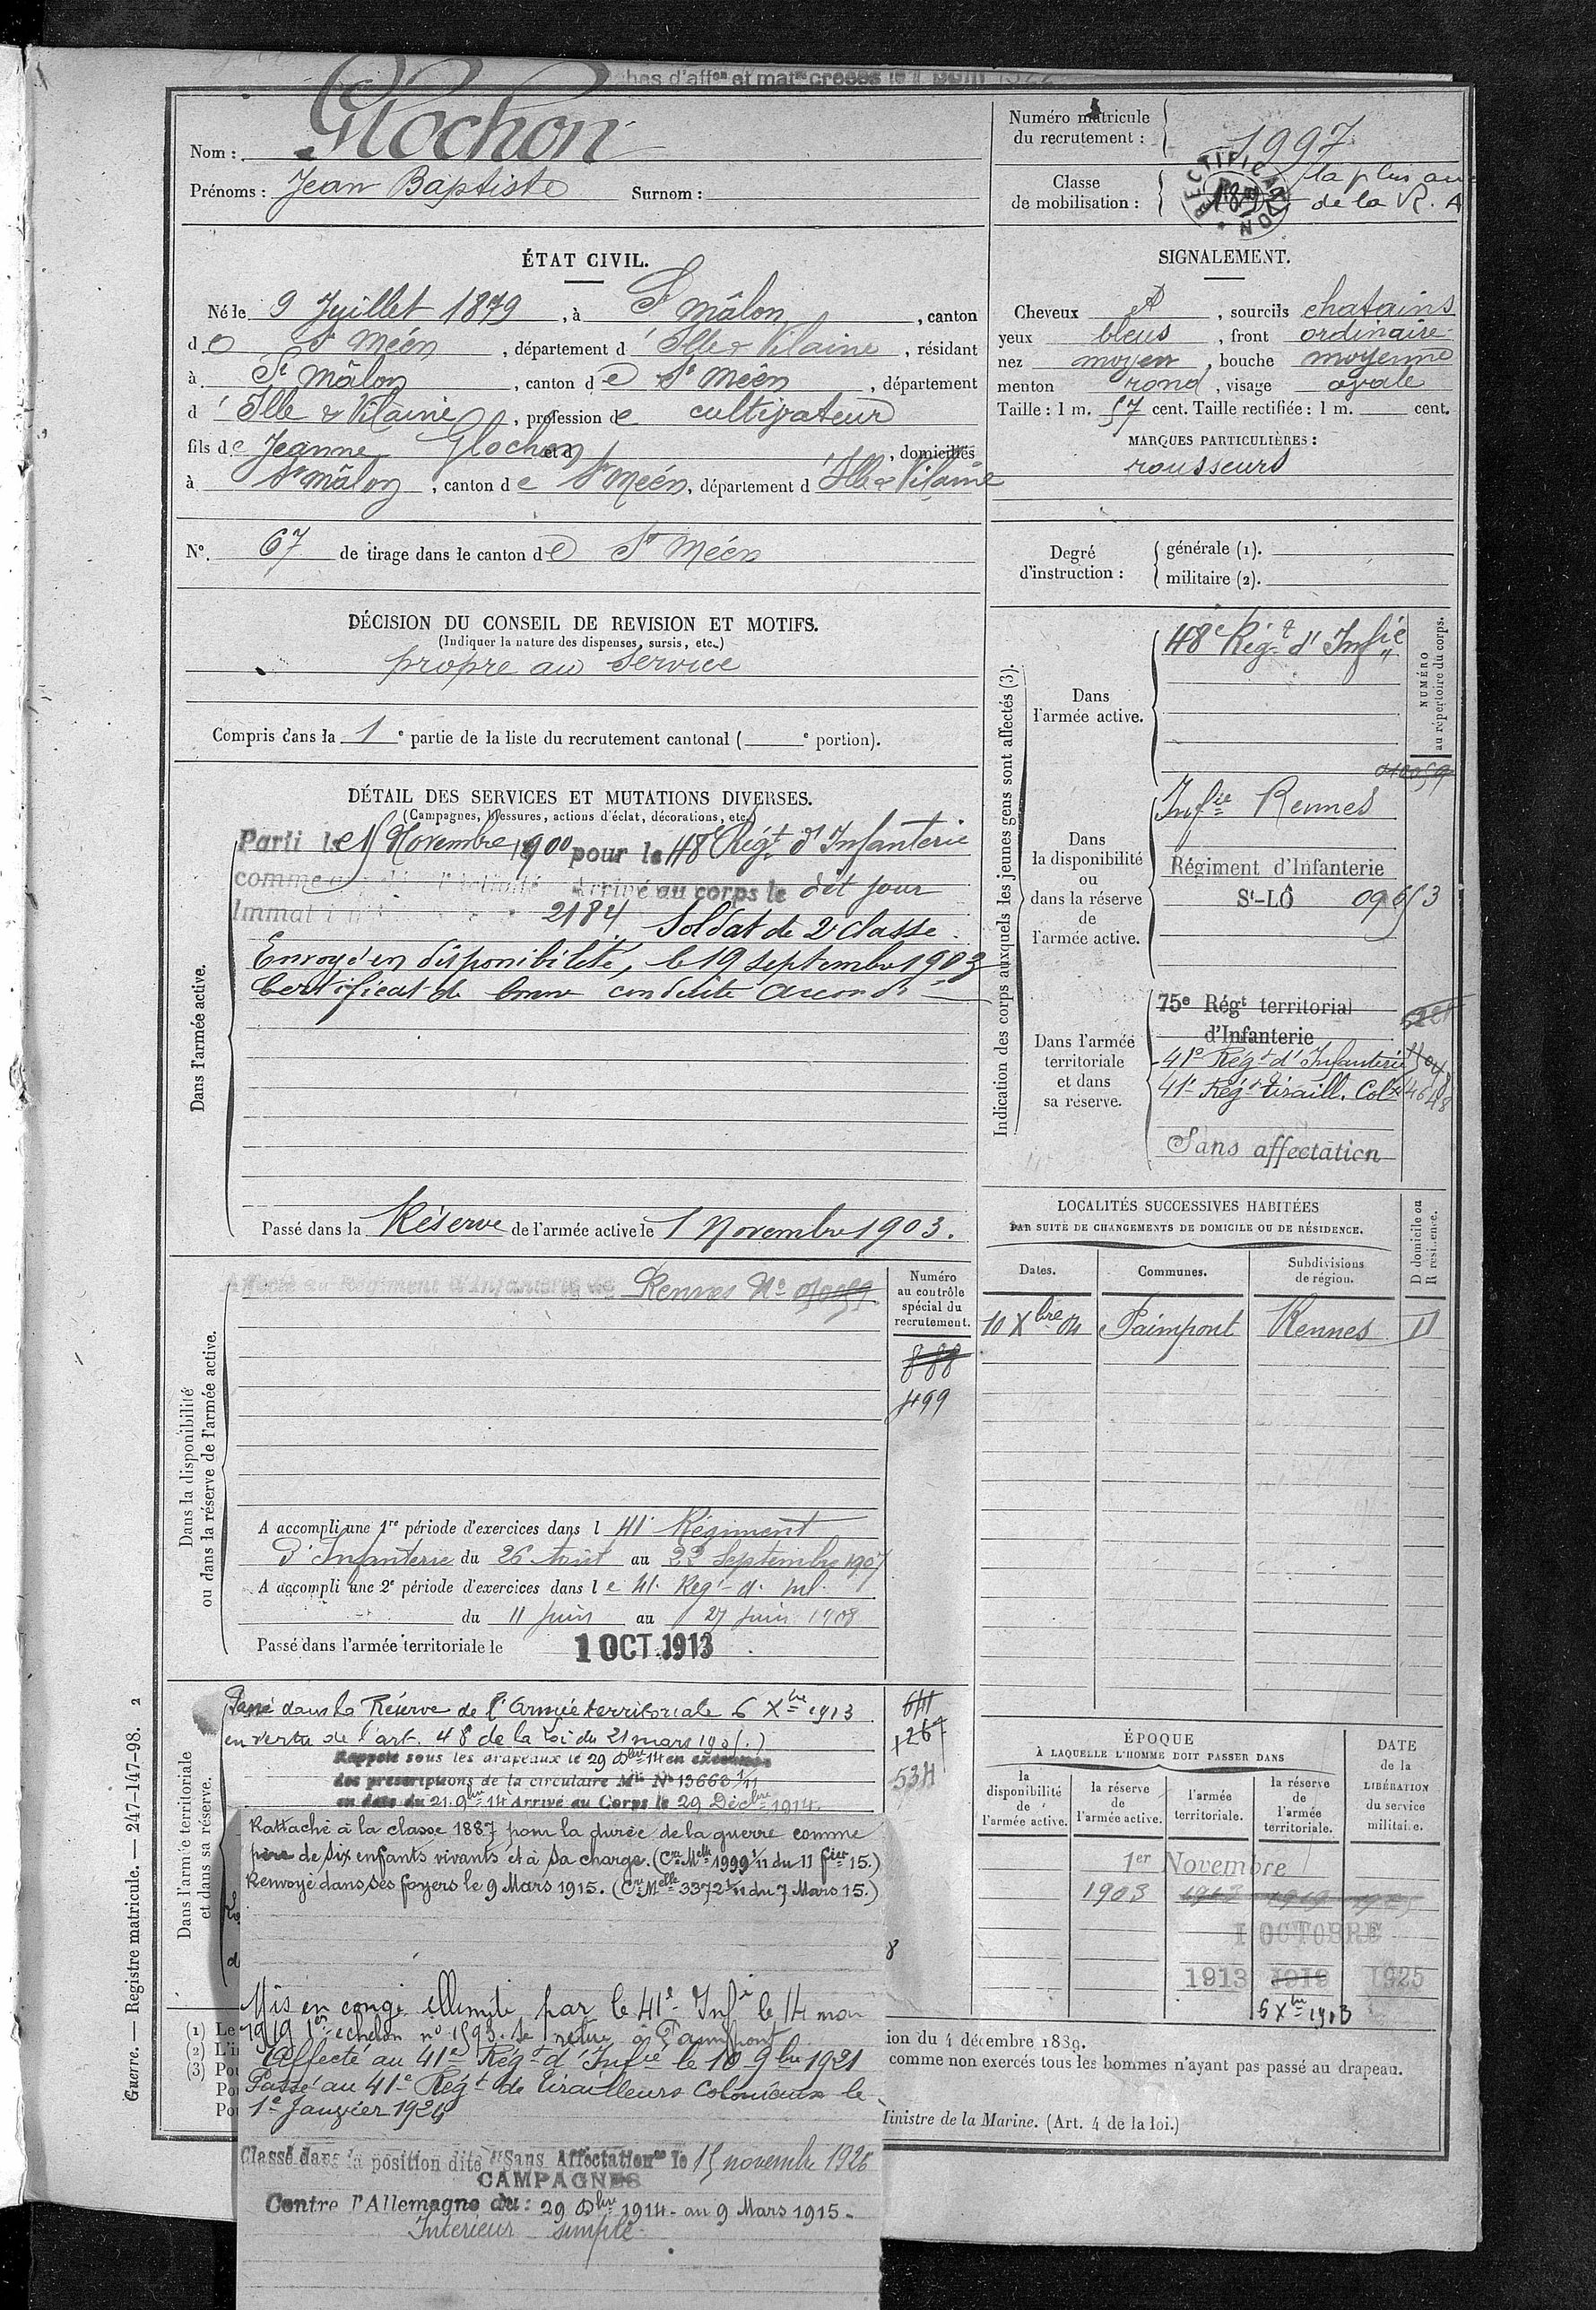 Nom : Glochon
Prénoms : Jean Baptiste Surnom :
Numéro matricule du recrutement : 1997
Classe de mobilisation : la plus anc
de la R. A
RECTIFICATION
ÉTAT CIVIL.
Né le 9 Juillet 1879, à St Mâlon, canton
de St Méen, département d'Ille & Vilaine, résidant
à St Mâlon, canton de St Méen, département
d'Ille & Vilaine, profession de cultivateur
fils de Jeanne Glochon et d , domiciliés
à St Mâlon, canton de St Méen, département d'Ille & Vilaine
No. 67 de tirage dans le canton de St Méen
SIGNALEMENT.
Cheveux et, sourcils chatains
yeux bleus, front ordinaire
nez moyen, bouche moyenne
menton rond, visage ovale
Taille : 1 m. 57 cent. Taille rectifiée : 1 m. cent.
MARQUES PARTICULIÈRES :
rousseurs
Degré d'instruction : générale (1).
militaire (2).
DÉCISION DU CONSEIL DE REVISION ET MOTIFS.
(Indiquer la nature des dispenses, sursis, etc.)
propre au service
Compris dans la 1e partie de la liste du recrutement cantonal ( e portion).
DÉTAIL DES SERVICES ET MUTATIONS DIVERSES.
(Campagnes, blessures, actions d'éclat, décorations, etc.)
Dans l'armée active.
Parti le Novembre 1900 pour le 48e Régt d'Infanterie
Arrivé au corps le dit jour
2184 Soldat de 2e classe.
Envoyé en disponibilité, le 19 septembre 1903
Certificat de bonne conduite accordé
Passé dans la Réserve de l'armée active le 1 Novembre 1903.
Indication des corps auxquels les jeunes gens sont affectés (3).
NUMÉRO au répertoire du corps.
Dans l'armée active.
48e Régt d'Infie
Dans la disponibilité ou dans la réserve de l'armée active.
Infie Rennes
Régiment d'Infanterie
St-LÔ
Dans l'armée territoriale et dans sa réserve.
75e Régt territorial
d'Infanterie
41e Régt d'Infanterie
41e Régt tiraill. Colx
Sans affectation
LOCALITÉS SUCCESSIVES HABITÉES
PAR SUITE DE CHANGEMENTS DE DOMICILE OU DE RÉSIDENCE.
Dates. Communes. Subdivisions de région. D domicile ou R résidence.
10 Xbre 04 Paimpont Rennes D
Dans la disponibilité
ou dans la réserve de l'armée active.
Affecté au Régiment d'Infanterie de Rennes No
Numéro au contrôle spécial du recrutement.
888
499
A accompli une 1re période d'exercices dans l 41e Régiment
d'Infanterie du 26 Août au 22 Septembre 1907
A accompli une 2e période d'exercices dans le 41e Regt d' Inf.
du 11 juin au 27 juin 1908
Passé dans l'armée territoriale le 1 OCT. 1913
Dans l'armée territoriale
et dans sa réserve.
Passé dans la Réserve de l'Armée territoriale 6 Xbre 1913
en vertu de l'art. 48 de la Loi du 21 mars 1905.)
Rappelé sous les drapeaux le 29 Dbre 14 en exécution
des prescriptions de la circulaire Mlle No 13660 1/11
en date du 21. 9bre 14 Arrivé au Corps le 29 Décbre 1914.
1267
534
Rattaché à la classe 1887 pour la durée de la guerre comme
père de six enfants vivants et à sa charge. (Cre Melle 1999 1/11 du 11 fier 15.)
Renvoyé dans ses foyers le 9 Mars 1915. (Cre Melle 3372 1/11 du 7 Mars 15.)
Mis en congé illimité par le 41e Infie le 14 mars
1919 1er échelon no 1593. Se retire à Paimpont
Affecté au 41e Régt d'Infie le 10 9bre 1921
Passé au 41e Régt de tirailleurs Coloniaux le
1er Janvier 1924
Classé dans la position dite "Sans Affectation" le 15 novembre 1926
CAMPAGNES
Contre l'Allemagne du : 29 Dbre 1914 - au 9 Mars 1915 -
Intérieur simple
ÉPOQUE
À LAQUELLE L'HOMME DOIT PASSER DANS
la disponibilité de l'armée active. la réserve de l'armée active. l'armée territoriale. la réserve de l'armée territoriale.
DATE de la LIBÉRATION du service militaire.
1er Novembre
1903 1913 1919 1925
1 OCTOBRE
1913 1919 1925
6 Xbre 1913
ion du 4 décembre 1889.
comme non exercés tous les hommes n'ayant pas passé au drapeau.
Ministre de la Marine. (Art. 4 de la loi.)
Guerre. — Registre matricule. — 247-147-98. 2